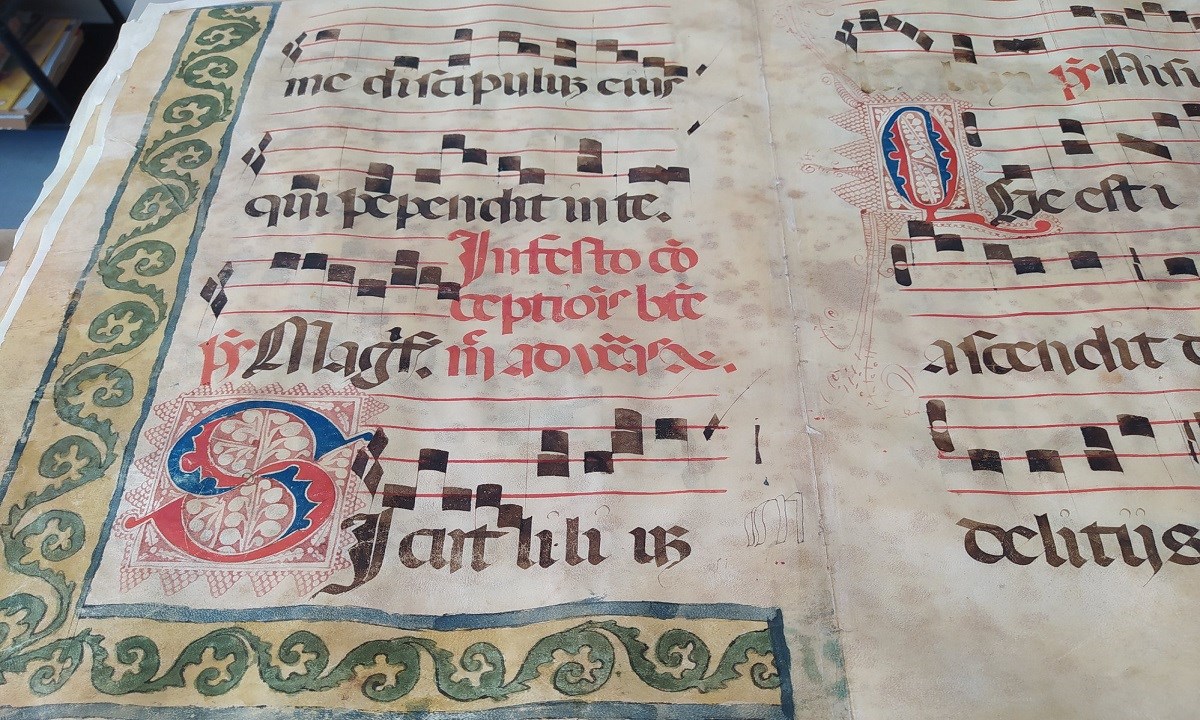 me discipulus eius
qui pependit in te.
In festo cō
ceptiōis btē
ps̄ Magf̄.
SIcut lili uȝ
ps̄ Nisi
QUe est i
ascendit
delitijs